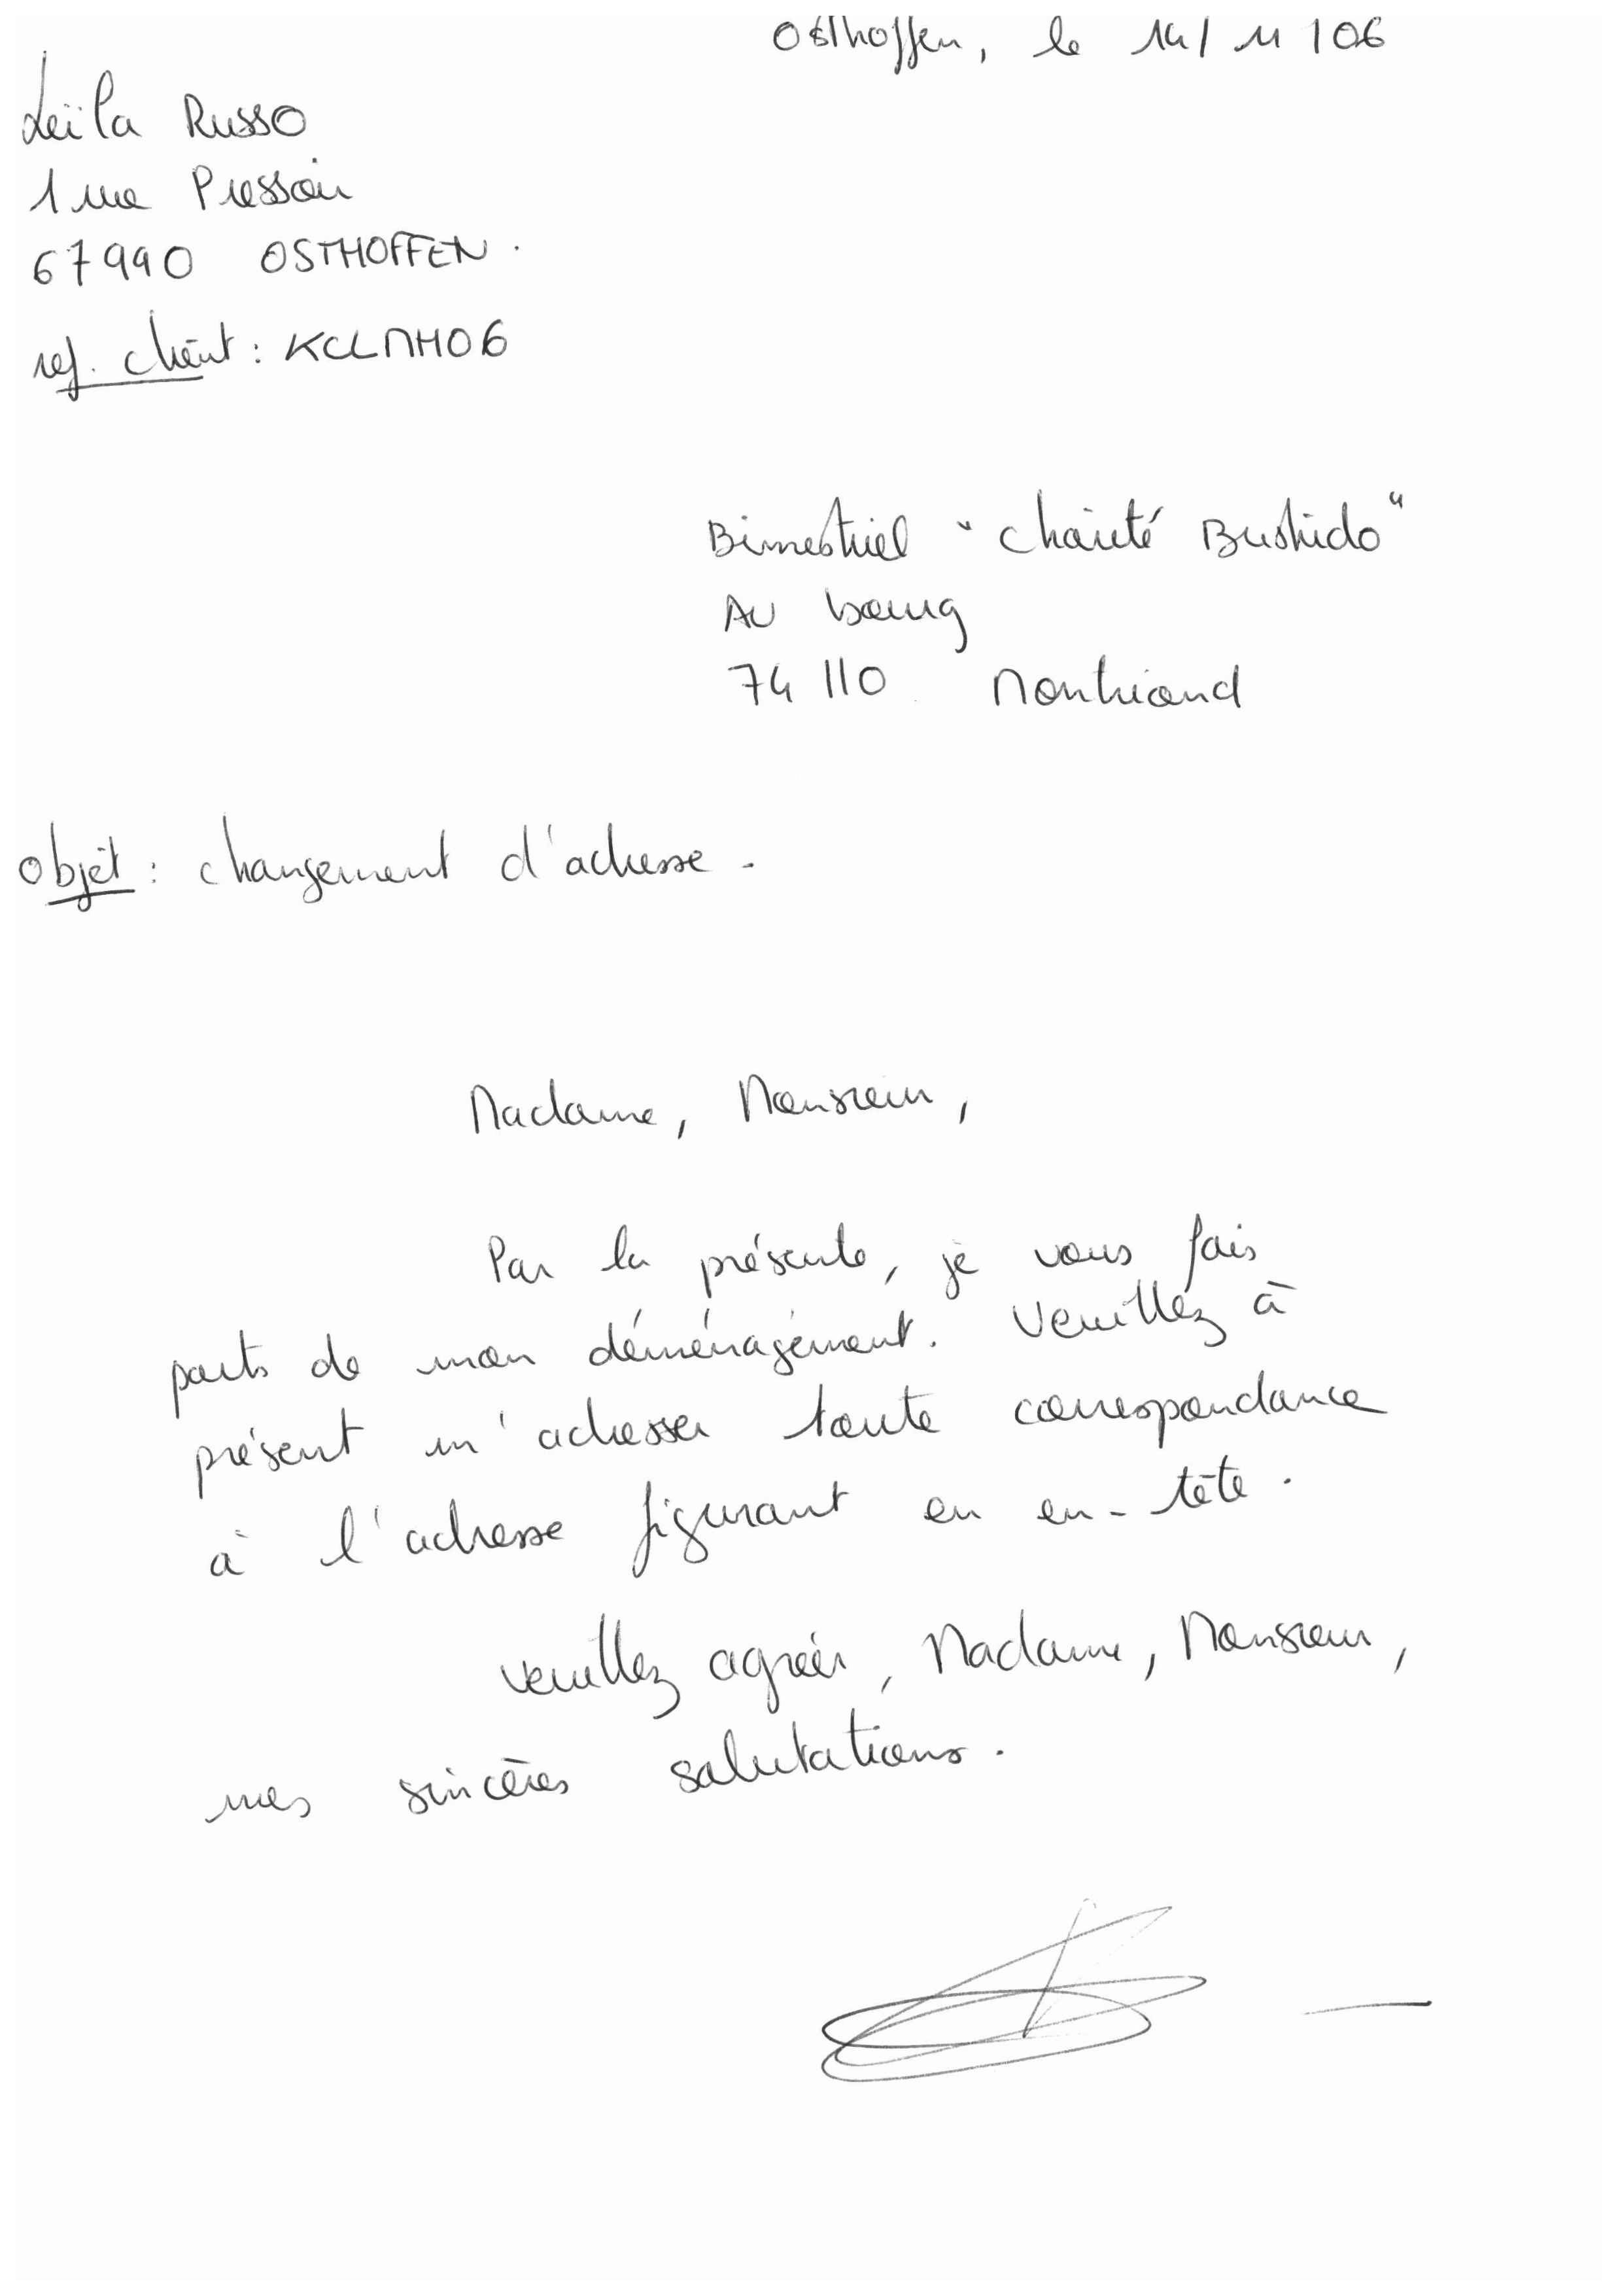 Osthoffen, le 14/11/06
Leïla Russo
1 rue Pressoir
67990 OSTHOFFEN.
ref. client : KCLMH06
Bimestriel "Charité Bushido"
AU bourg
74110 Montriond
objet : changement d'adresse.
Madame, Monsieur,
Par la présente, je vous fais
parts de mon déménagement. Veuillez à
présent m'adresser toute correspondance
à l'adresse figurant en en-tête.
Veuillez agréer, Madame, Monsieur,
mes sincères salutations.